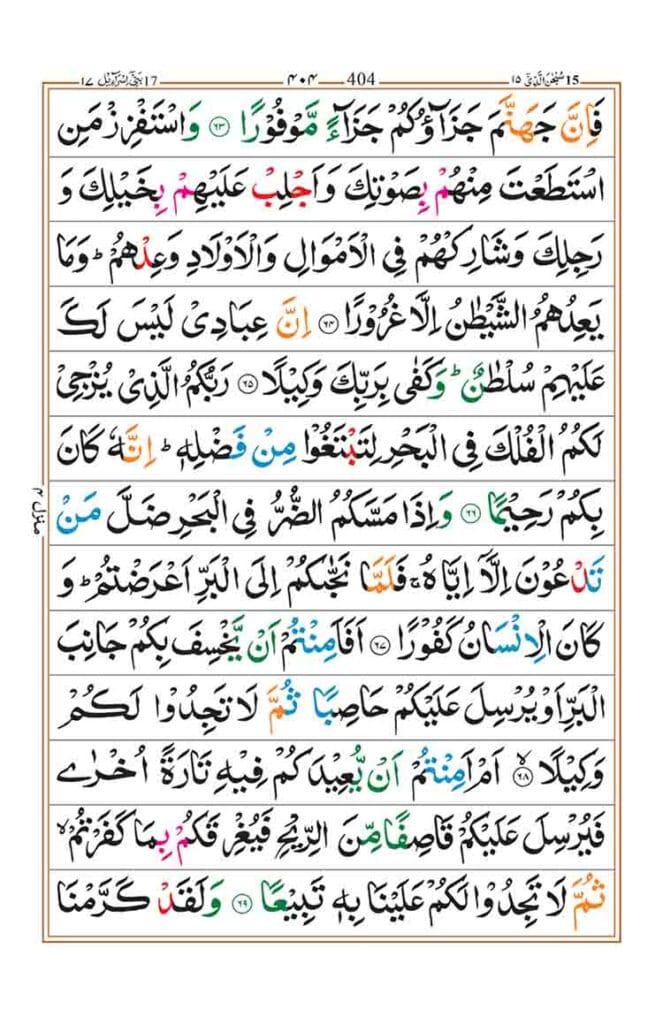 سُبْحٰنَ الَّذِیْۤ ۱۵ 15 404 ۴۰۴ بَنِیْۤ اِسْرَآءِیْل ۱۷ 17
فَاِنَّ جَهَنَّمَ جَزَآؤُكُمْ جَزَآءً مَّوْفُوْرًا ۶۳ وَاسْتَفْزِزْ مَنِ
اسْتَطَعْتَ مِنْهُمْ بِصَوْتِكَ وَاَجْلِبْ عَلَيْهِمْ بِخَيْلِكَ وَ
رَجِلِكَ وَشَارِكْهُمْ فِی الْاَمْوَالِ وَالْاَوْلَادِ وَعِدْهُمْ ؕ وَمَا
يَعِدُهُمُ الشَّيْطٰنُ اِلَّا غُرُوْرًا ۶۴ اِنَّ عِبَادِیْ لَيْسَ لَكَ
عَلَيْهِمْ سُلْطٰنٌ ؕ وَكَفٰی بِرَبِّكَ وَكِيْلًا ۶۵ رَبُّكُمُ الَّذِیْ يُزْجِیْ
لَكُمُ الْفُلْكَ فِی الْبَحْرِ لِتَبْتَغُوْا مِنْ فَضْلِهٖ ؕ اِنَّهٗ كَانَ
بِكُمْ رَحِيْمًا ۶۶ وَاِذَا مَسَّكُمُ الضُّرُّ فِی الْبَحْرِ ضَلَّ مَنْ
تَدْعُوْنَ اِلَّاۤ اِيَّاهُ ۚ فَلَمَّا نَجّٰىكُمْ اِلَی الْبَرِّ اَعْرَضْتُمْ ؕ وَ
كَانَ الْاِنْسَانُ كَفُوْرًا ۶۷ اَفَاَمِنْتُمْ اَنْ يَّخْسِفَ بِكُمْ جَانِبَ
الْبَرِّ اَوْ يُرْسِلَ عَلَيْكُمْ حَاصِبًا ثُمَّ لَا تَجِدُوْا لَكُمْ
وَكِيْلًا ۙ ۶۸ اَمْ اَمِنْتُمْ اَنْ يُّعِيْدَكُمْ فِيْهِ تَارَةً اُخْرٰی
فَيُرْسِلَ عَلَيْكُمْ قَاصِفًا مِّنَ الرِّيْحِ فَيُغْرِقَكُمْ بِمَا كَفَرْتُمْ ۙ
ثُمَّ لَا تَجِدُوْا لَكُمْ عَلَيْنَا بِهٖ تَبِيْعًا ۶۹ وَلَقَدْ كَرَّمْنَا
منزل ۴